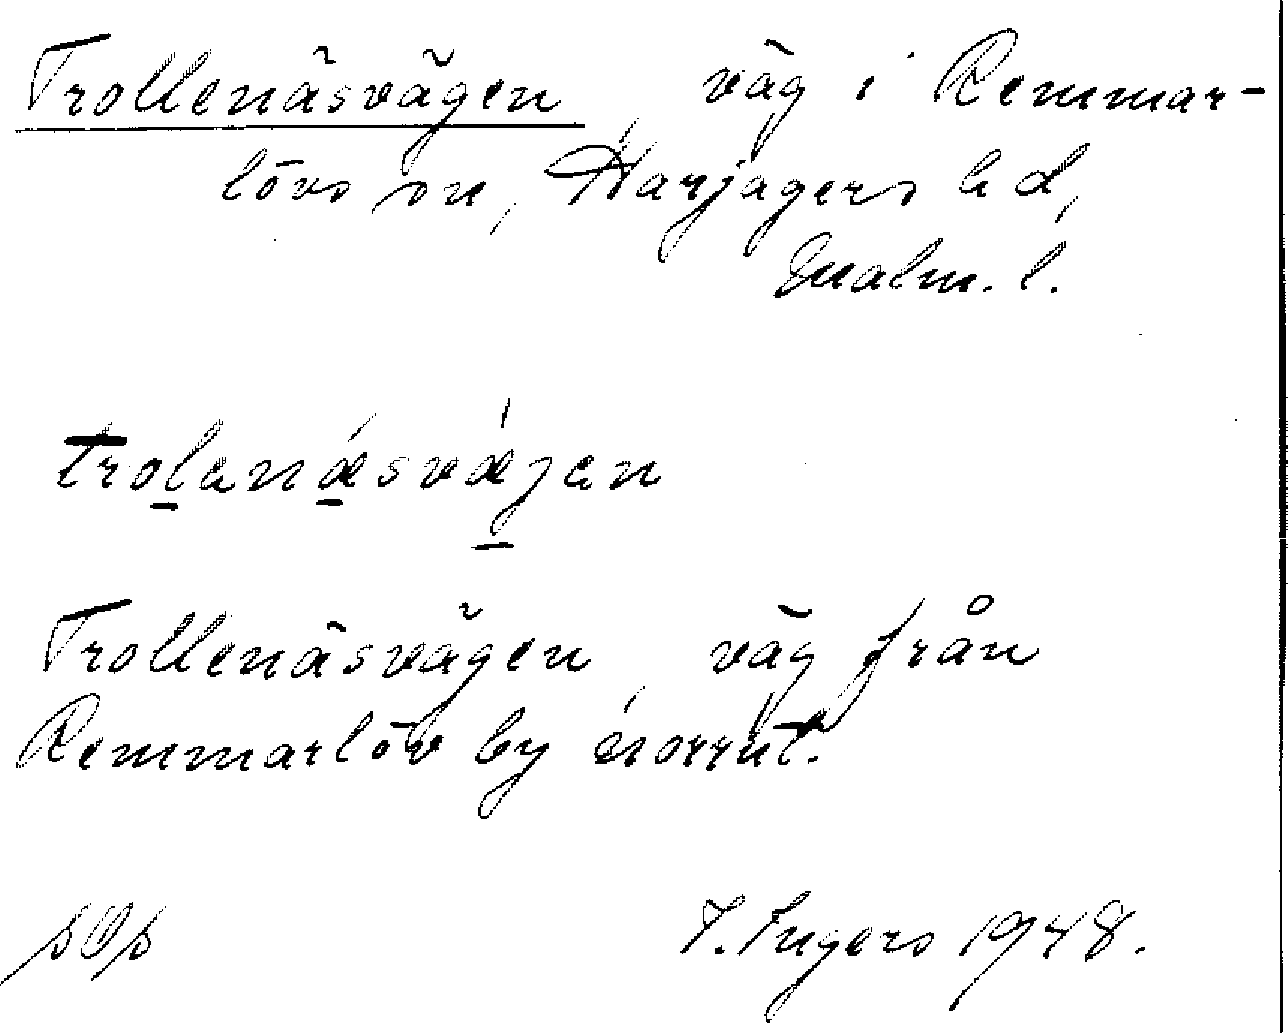 Trollenäsvägen, väg i Remmar-
lövs sn, Harjagers hd,
Malm. l.
trolanǽsvǽjan
Trollenäsvägen, väg från
Remmarlöv by norrut.
I. Ingers 1948.